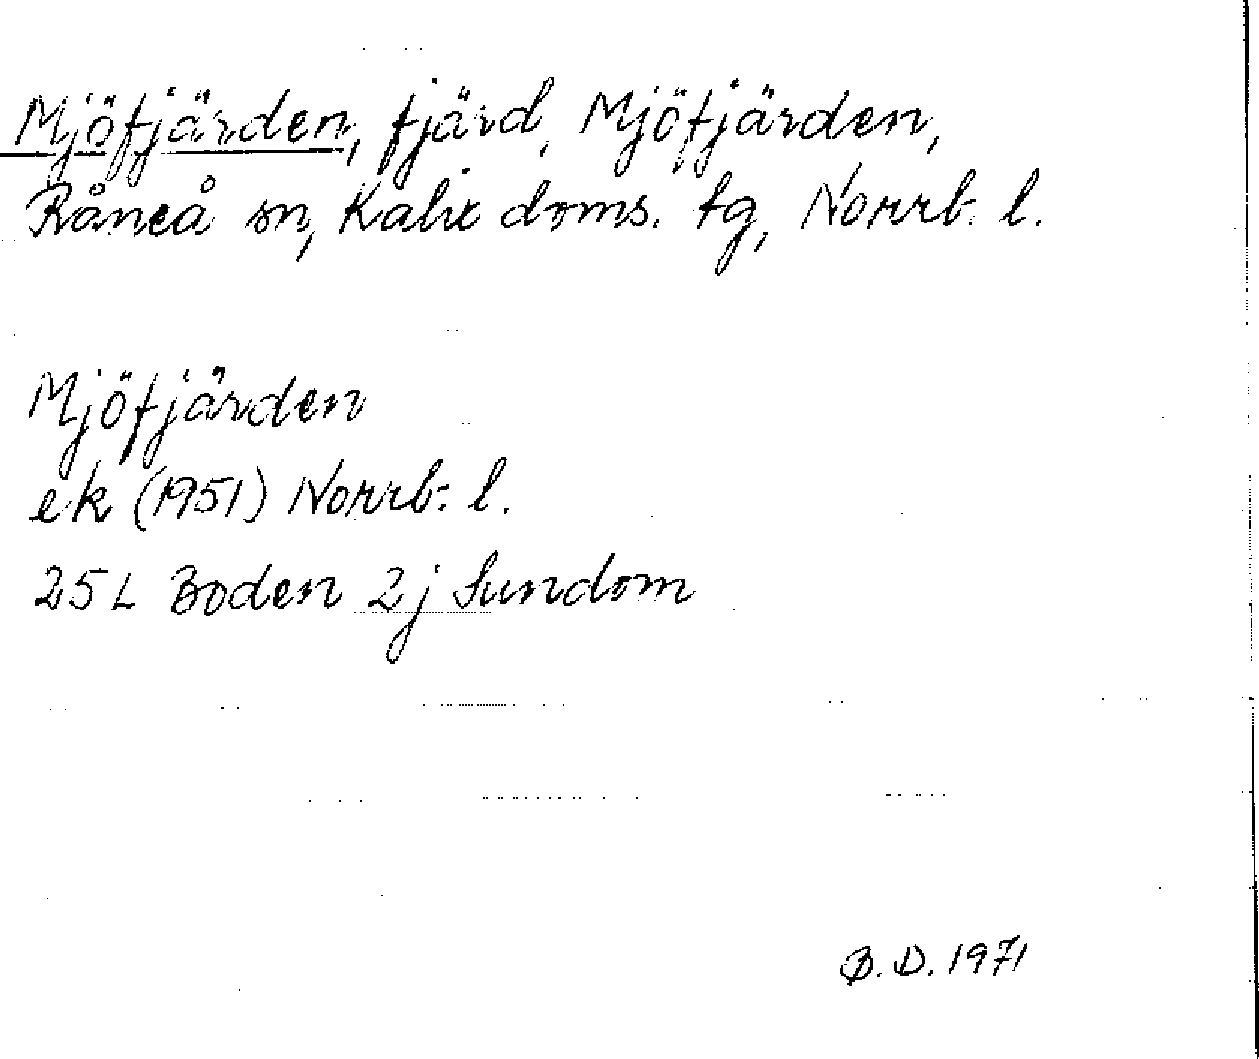 Mjöfjärden, fjärd, Mjöfjärden,
Råneå sn, Kalix doms. tg, Norrb. l.
Mjöfjärden
ek (1951) Norrb. l.
25 L Boden 2j Sundom
B. D. 1971